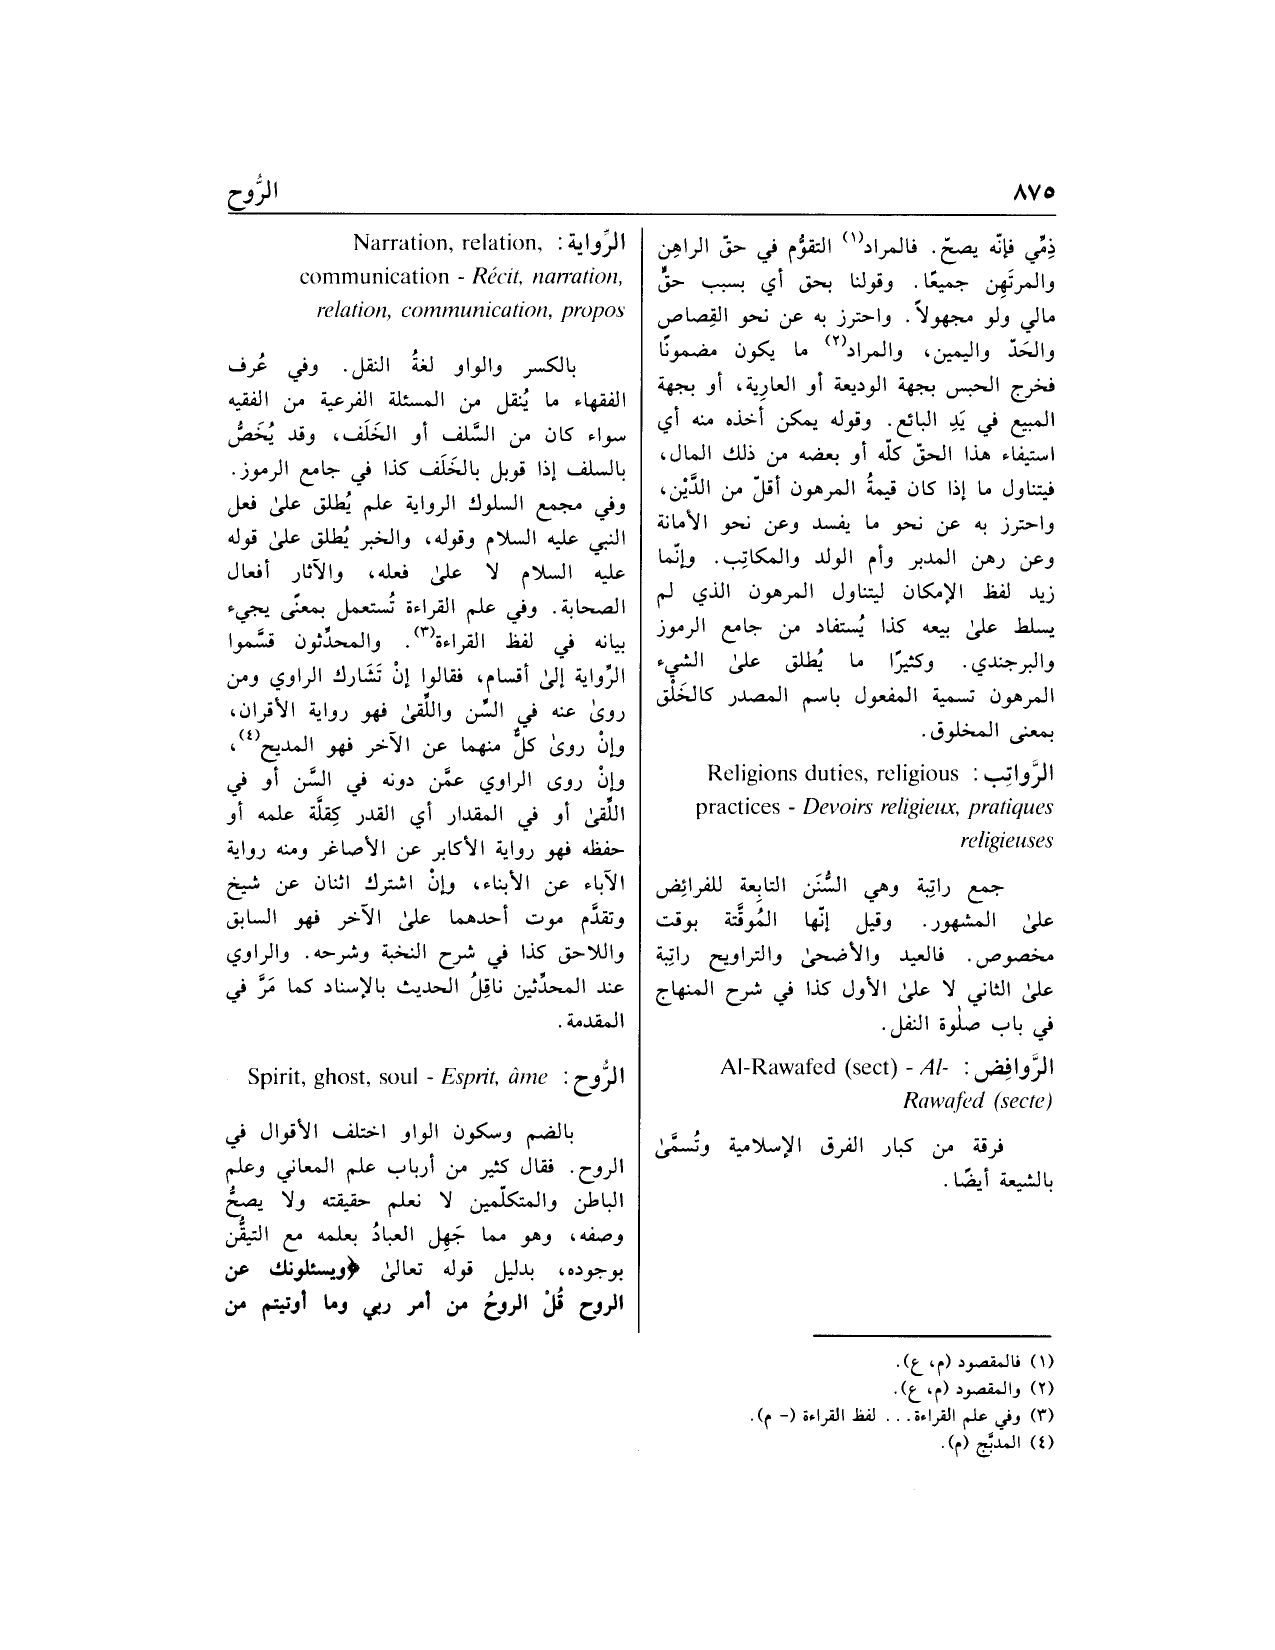 ٨٧٥
الرُّوح
ذِمِّي فإنّه يصحّ. فالمراد(١) التقوُّم في حقّ الراهِن
والمرتَهِن جميعًا. وقولنا بحق أي بسبب حقٍّ
مالي ولو مجهولاً. واحترز به عن نحو القِصاص
والحَدّ واليمين، والمراد(٢) ما يكون مضمونًا
فخرج الحبس بجهة الوديعة أو العارِية، أو بجهة
المبيع في يَدِ البائع. وقوله يمكن أخذه منه أي
استيفاء هذا الحقّ كلّه أو بعضه من ذلك المال،
فيتناول ما إذا كان قيمةُ المرهون أقلّ من الدَّيْن،
واحترز به عن نحو ما يفسد وعن نحو الأمانة
وعن رهن المدبر وأم الولد والمكاتِب. وإنّما
زيد لفظ الإمكان ليتناول المرهون الذي لم
يسلط علىٰ بيعه كذا يُستفاد من جامع الرموز
والبرجندي. وكثيرًا ما يُطلق علىٰ الشيء
المرهون تسمية المفعول باسم المصدر كالخَلْق
بمعنى المخلوق.
الرَّواتِب: Religions duties, religious
practices - Devoirs religieux, pratiques
religieuses
جمع راتِبة وهي السُّنَن التابِعة للفرائِض
علىٰ المشهور. وقيل إنّها المُوقَّتة بوقت
مخصوص. فالعيد والأضحىٰ والتراويح راتِبة
علىٰ الثاني لا علىٰ الأول كذا في شرح المنهاج
في باب صلٰوة النفل.
الرَّوافِض: Al-Rawafed (sect) - Al-
Rawafed (secte)
فرقة من كبار الفرق الإسلامية وتُسمَّىٰ
بالشيعة أيضًا.
الرِّواية: Narration, relation,
communication - Récit, narration,
relation, communication, propos
بالكسر والواو لغةً النقل. وفي عُرف
الفقهاء ما يُنقل من المسئلة الفرعية من الفقيه
سواء كان من السَّلف أو الخَلَف، وقد يُخَصُّ
بالسلف إذا قوبل بالخَلَف كذا في جامع الرموز.
وفي مجمع السلوك الرواية علم يُطلق علىٰ فعل
النبي عليه السلام وقوله، والخبر يُطلق علىٰ قوله
عليه السلام لا علىٰ فعله، والآثار أفعال
الصحابة. وفي علم القراءة تُستعمل بمعنًى يجيء
بيانه في لفظ القراءة(٣). والمحدِّثون قسَّموا
الرِّواية إلىٰ أقسام، فقالوا إنْ تَشَارك الراوي ومن
روىٰ عنه في السِّن واللِّقىٰ فهو رواية الأقران،
وإنْ روىٰ كلٌّ منهما عن الآخر فهو المديح(٤)،
وإنْ روى الراوي عمَّن دونه في السَّن أو في
اللِّقىٰ أو في المقدار أي القدر كِقلَّة علمه أو
حفظه فهو رواية الأكابر عن الأصاغر ومنه رواية
الآباء عن الأبناء، وإنْ اشترك اثنان عن شيخ
وتقدَّم موت أحدهما علىٰ الآخر فهو السابق
واللاحق كذا في شرح النخبة وشرحه. والراوي
عند المحدِّثين ناقِلُ الحديث بالإسناد كما مَرَّ في
المقدمة.
الرُّوح: Spirit, ghost, soul - Esprit, âme
بالضم وسكون الواو اختلف الأقوال في
الروح. فقال كثير من أرباب علم المعاني وعلم
الباطن والمتكلّمين لا نعلم حقيقته ولا يصحُّ
وصفه، وهو مما جَهِل العبادُ بعلمه مع التيقُّن
بوجوده، بدليل قوله تعالىٰ ﴿ويسئلونك عن
الروح قُلْ الروحُ من أمر ربي وما أوتيتم من
(١) فالمقصود (م، ع).
(٢) والمقصود (م، ع).
(٣) وفي علم القراءة... لفظ القراءة (- م).
(٤) المدبَّج (م).